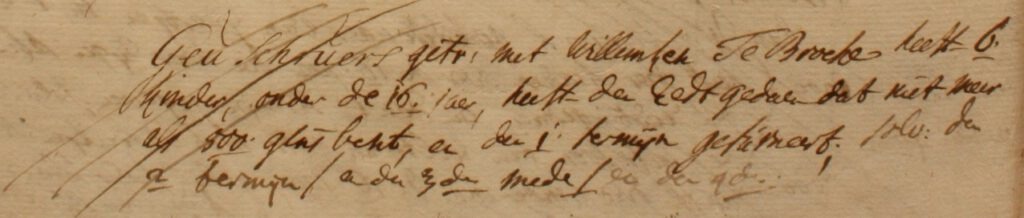 Geu Schruers getr: met Willemken Te Broeke heeft 6.
Kinder, onder de 16. jaer, heeft den Eedt gedaen dat niet meer
als 500 guls besit, en den 1. termijn gefurneert, solv: den
2e termijn / en den 3den mede / en den 4de.